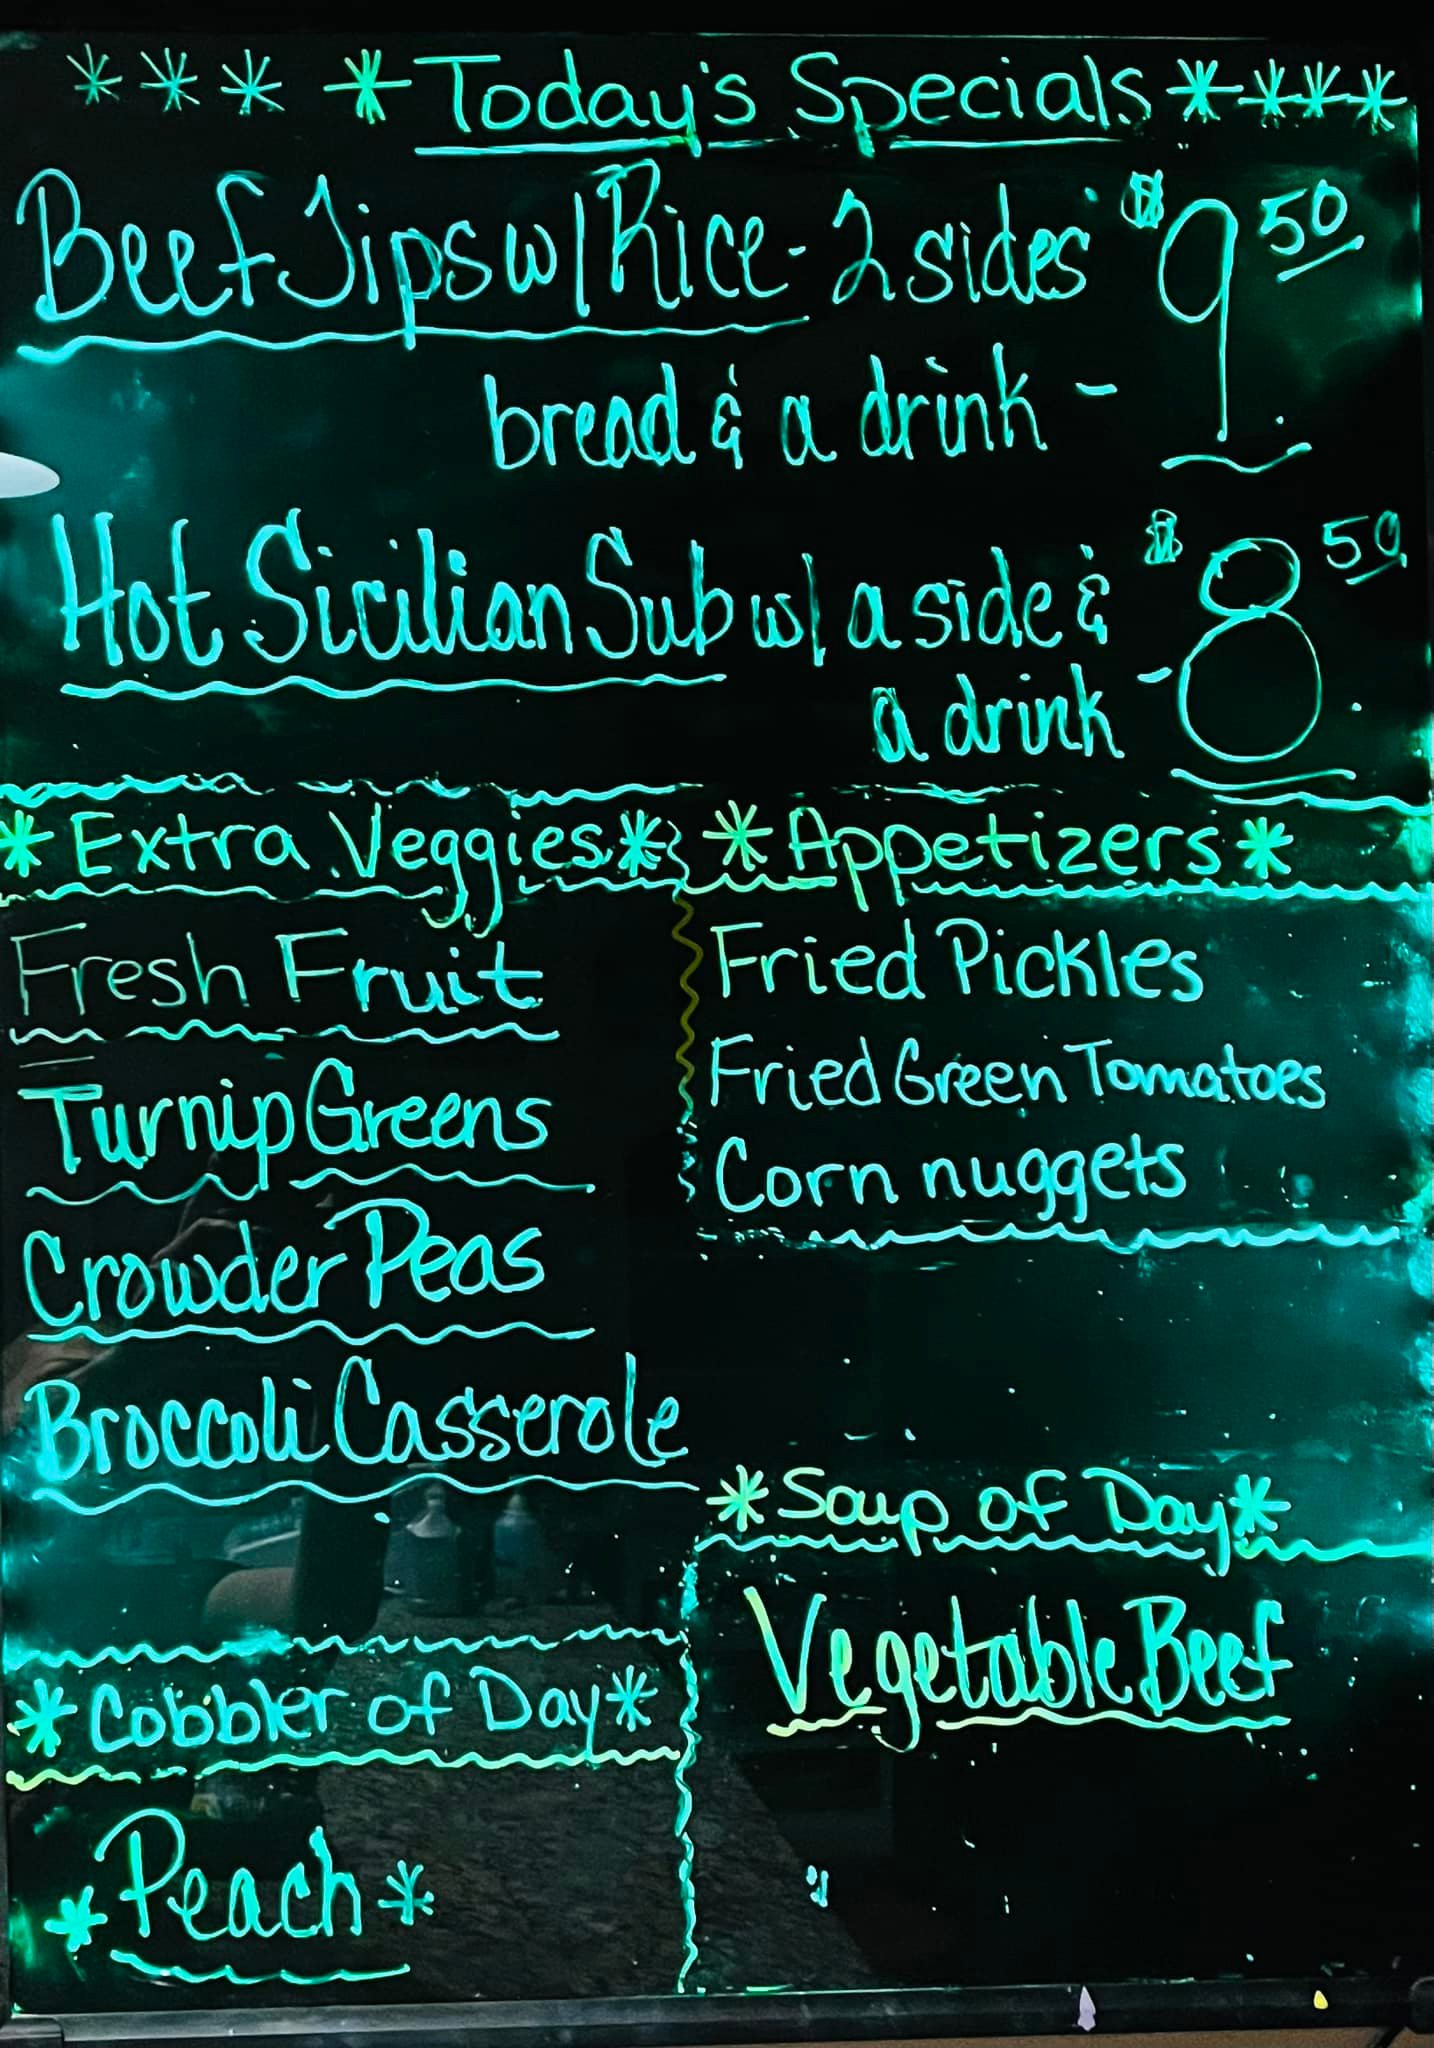 *** *Today's Specials****
Beef Tips w/Rice - 2 sides $9.50
bread & a drink -
Hot Sicilian Sub w/ a side & $8.50
a drink -
*Extra Veggies*
Fresh Fruit
Turnip Greens
Crowder Peas
Broccoli Casserole
*Appetizers*
Fried Pickles
Fried Green Tomatoes
Corn nuggets
*Soup of Day*
Vegetable Beef
*Cobbler of Day*
*Peach*